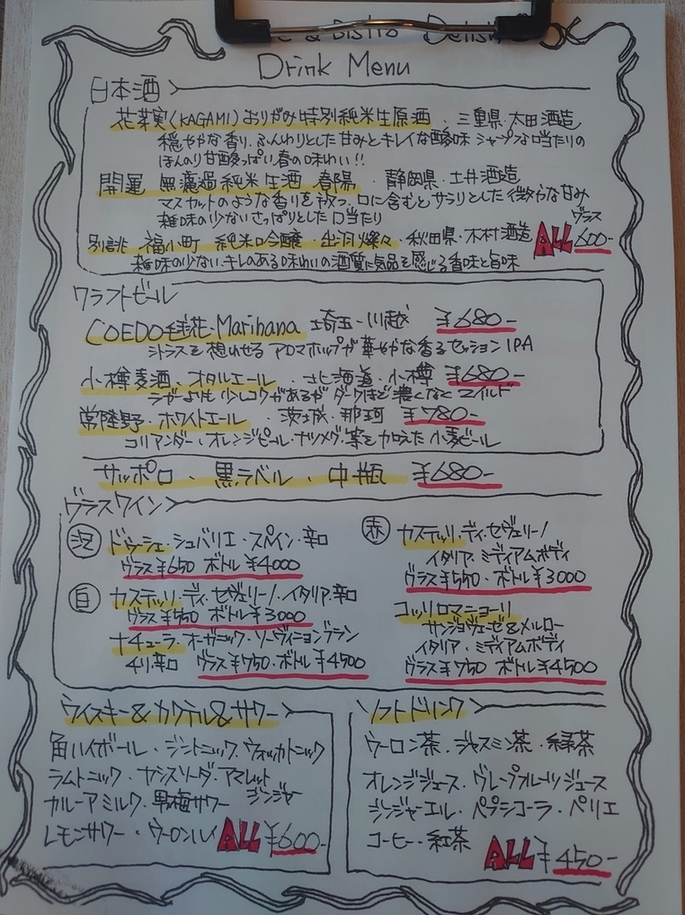 & Bistro Delish
Drink Menu
日本酒
花菜実(KAGAMI)おりがみ特別純米生原酒・三重県・太田酒造
穏やかな香り、ふんわりとした甘みとキレイな酸味 シャープな口当たりの
ほんのり甘酸っぱい春の味わい!!
開運 無濾過純米 生酒 春陽・静岡県・土井酒造
マスカットのような香りを放つ、口に含むとサラリとした微かな甘み
雑味の少ないさっぱりとした口当たり
別誂 福小町 純米吟醸・出羽燦々・秋田県・木村酒造
雑味の少ない、キレのある味わいの酒質に気品を感じる香味と旨味
グラス
ALL 600-
クラフトビール
COEDO毬花・Marihana 埼玉・川越 ¥680-
シトラスを想わせる アロマホップが華やかな香るセッションIPA
小樽麦酒・オタルエール・北海道・小樽 ¥680-
ラガーより少しコクがあるがダークほど濃くなく マイルド
常陸野・ホワイトエール・茨城・那珂 ¥780-
コリアンダー・オレンジピール・ナツメグ・等を加えた小麦ビール
サッポロ・黒ラベル・中瓶 ¥680-
グラスワイン
泡 ドゥーシェ・シュバリエ・スペイン・辛口
グラス¥650 ボトル¥4000
白 カステッリ・ディ・セヴェリーノ・イタリア・辛口
グラス¥550 ボトル¥3000
ナチューラ・オーガニック・ソーヴィニヨンブラン
チリ辛口 グラス¥750・ボトル¥4500
赤 カステッリ・ディ・セヴェリーノ
イタリア・ミディアムボディ
グラス¥550・ボトル¥3000
コッリロマニョーリ
サンジョヴェーゼ&メルロー
イタリア・ミディアムボディ
グラス¥750 ボトル¥4500
ウイスキー&カクテル&サワー
角ハイボール・ジントニック・ウォッカトニック
ラムトニック・カシスソーダ・アマレット
ジンジャー
カルーアミルク・男梅サワー
レモンサワー・ウーロンハイ ALL ¥600-
ソフトドリンク
ウーロン茶・ジャスミン茶・緑茶
オレンジジュース・グレープフルーツジュース
ジンジャーエール・ペプシコーラ・ペリエ
コーヒー・紅茶 ALL ¥450-